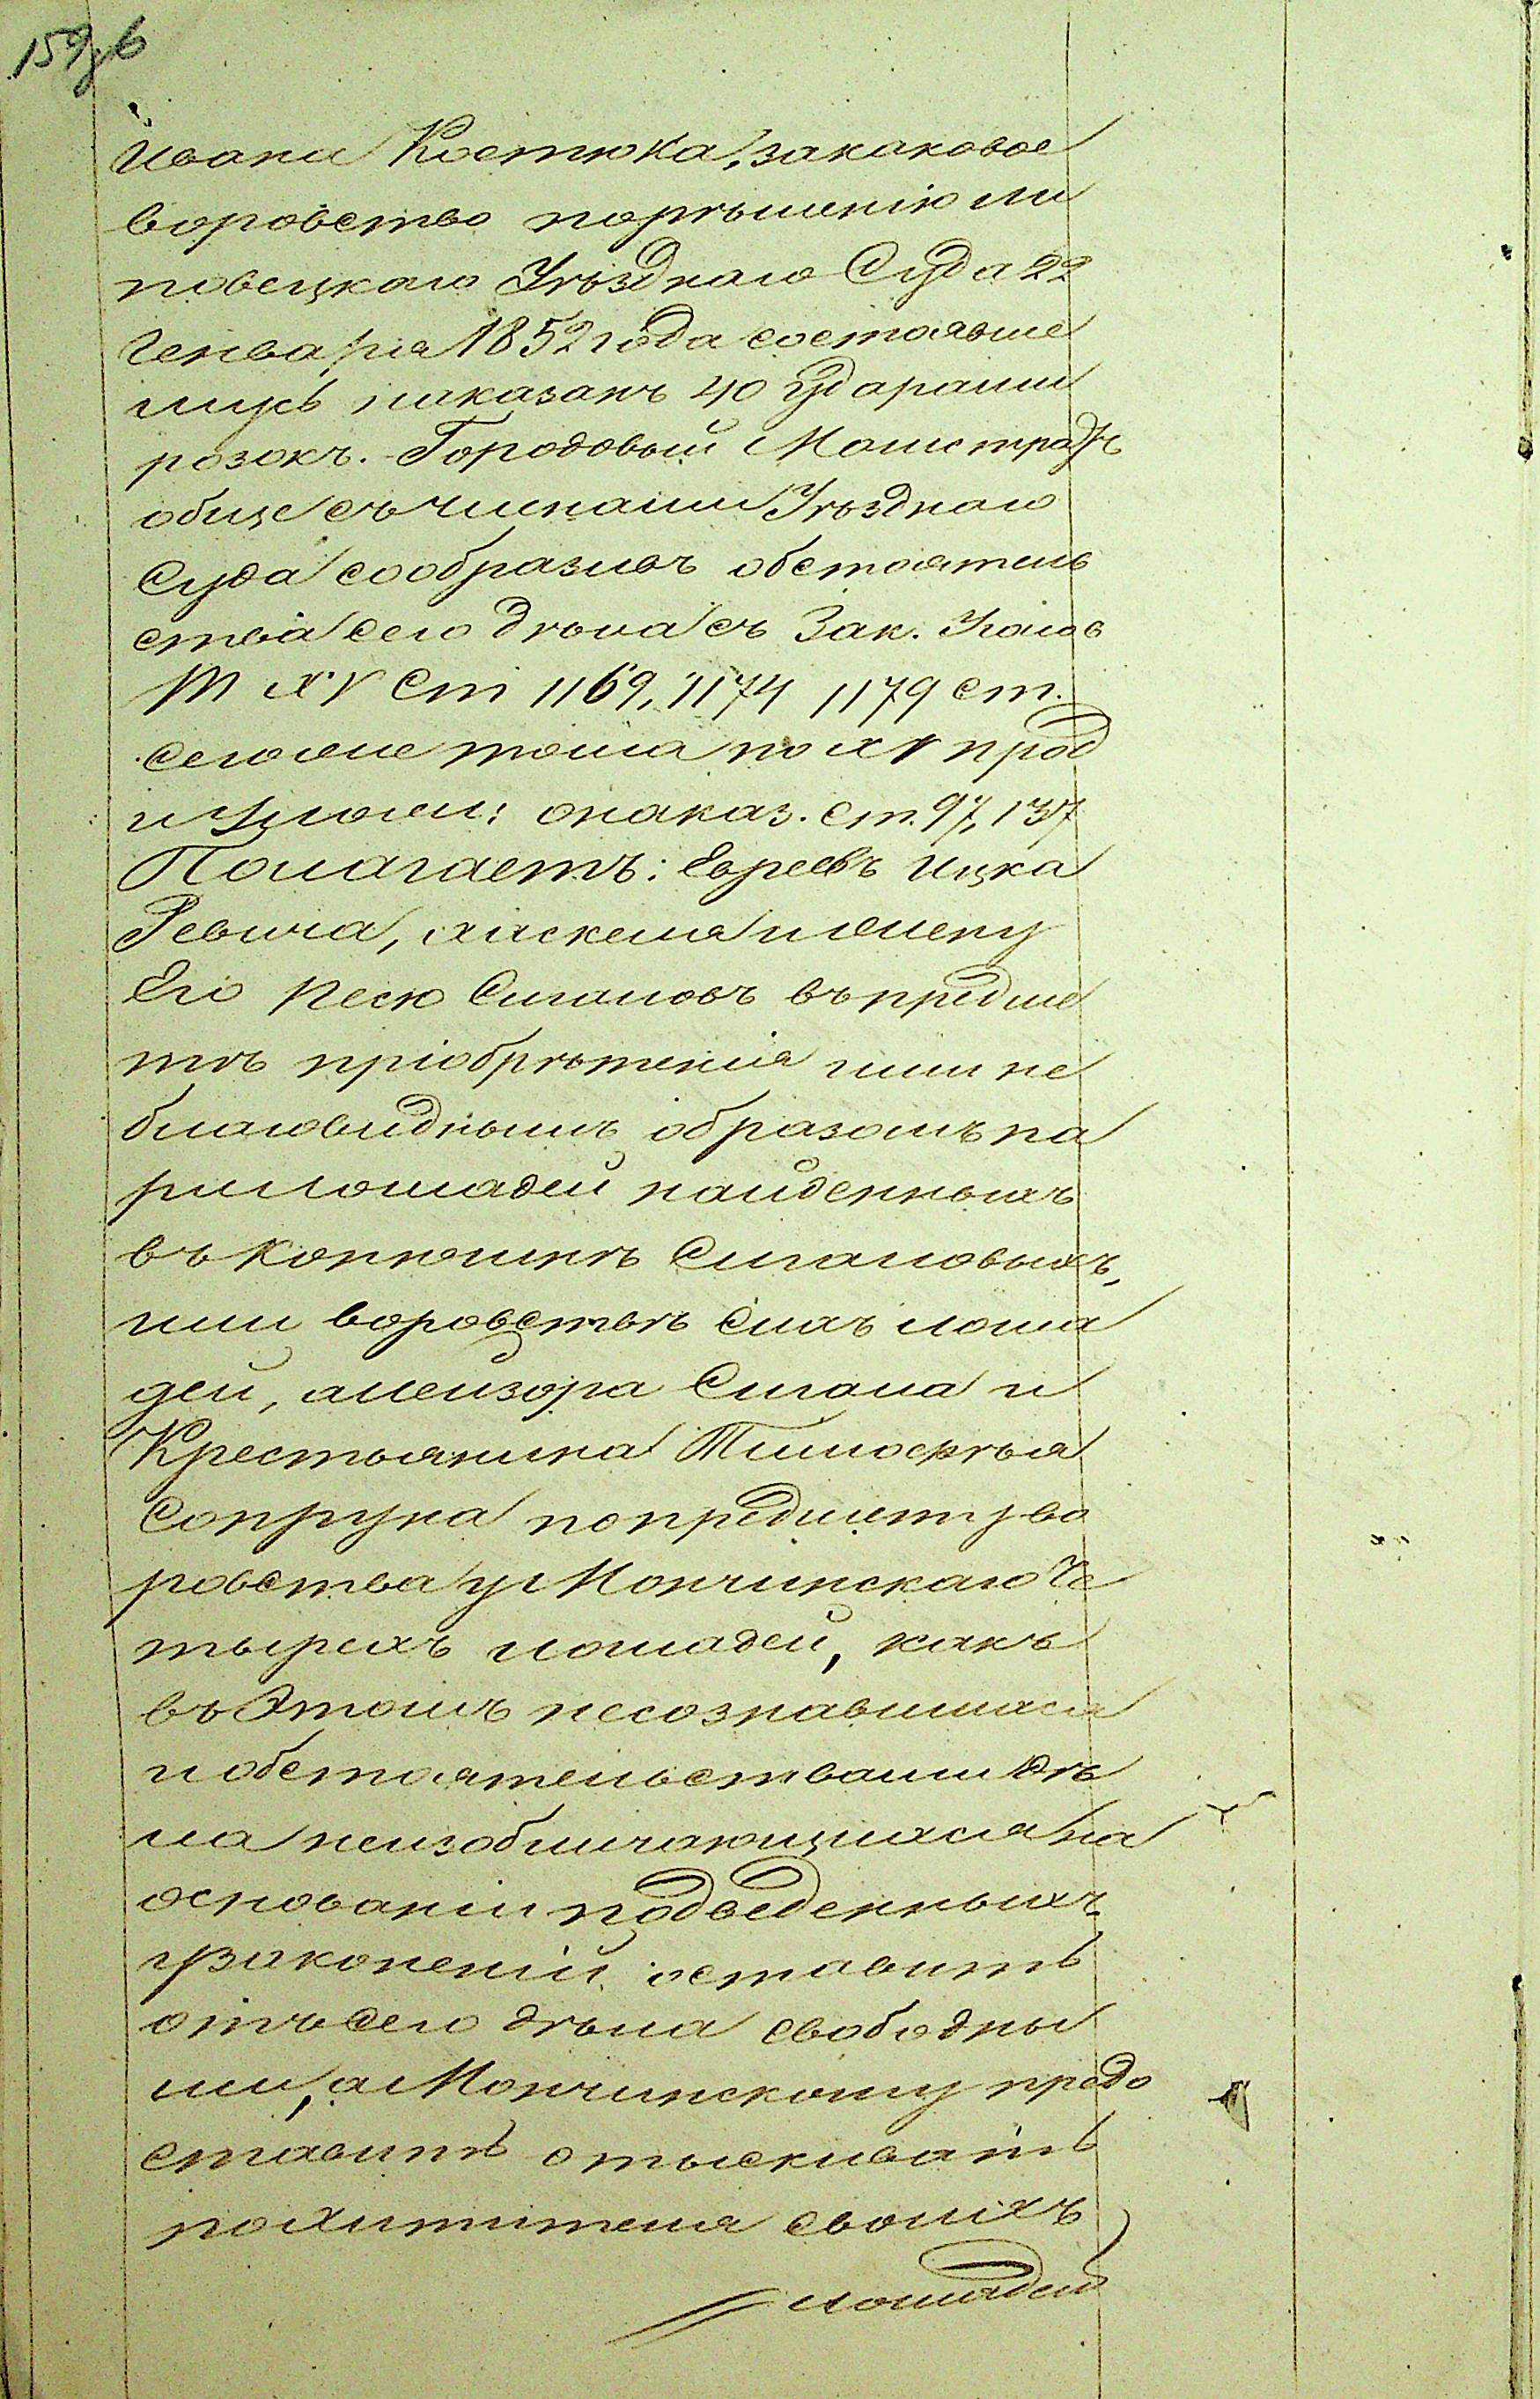 159об
Ивана Костюка, закаковое
воровство порѣшенію Ли
повецкаго Уѣзднаго Суда 22
Генваря 1852 года состоявше
муся наказанъ 40 ударами
розокъ. Городовый Магистратъ
обще съ членами Уѣзднаго
Суда сообразивъ обстоятель
ства сего дѣла съ Зак. Уголов
Т XV Ст 1169, 1174 1179 ст.
сегоже тома по XV прод
и Улож: онаказ. ст. 97, 137
Полагаетъ: Евреевъ Ицка
Ревича, Хаскеля и жену
Его Песю Сигаловъ въ предме
тѣ пріобрѣтенія ими не
благовиднымъ образомъ па
ры лошадей найденныхъ
въ конюшнѣ Сигаловыхъ,
или воровствѣ сихъ лоша
дей, а Лейзора Сигала и
Крестьянина Тимофѣя
Сопруна попредмету во
ровства у Мончинскаго Че
тырехъ лошадей, какъ
въ Этомъ несознавшихся
и обстоятельствами дѣ
ла неизобличающихся на
основаніи подведенныхъ
узаконеній оставить
отъ сего дѣла свободны
ми, а Мончинскому предо
ставить отыскивать
похитителя своихъ
лошадей